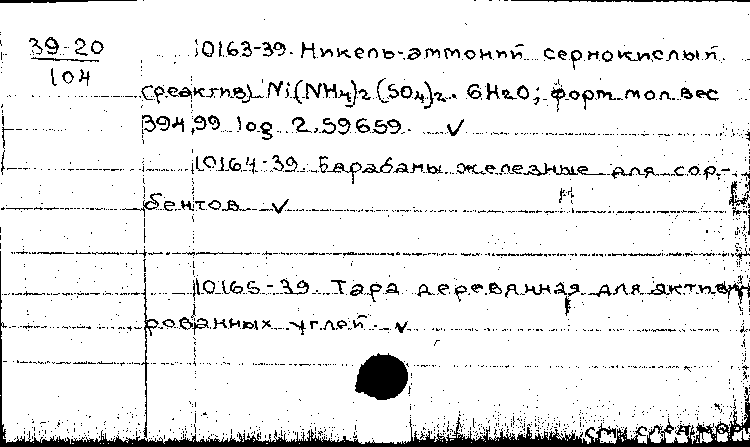 39-20
104
10163-39. Никель-аммоний сернокислый
(реактив) Ni(NH4)2(SO4)2 · 6H2O; форм мол вес
394,99 log 2.59659. ✓
10164-39. Барабаны железные для сор-
бентов ✓
10165-39. Тара деревянная для активи
рованных углей. ✓
см. след.